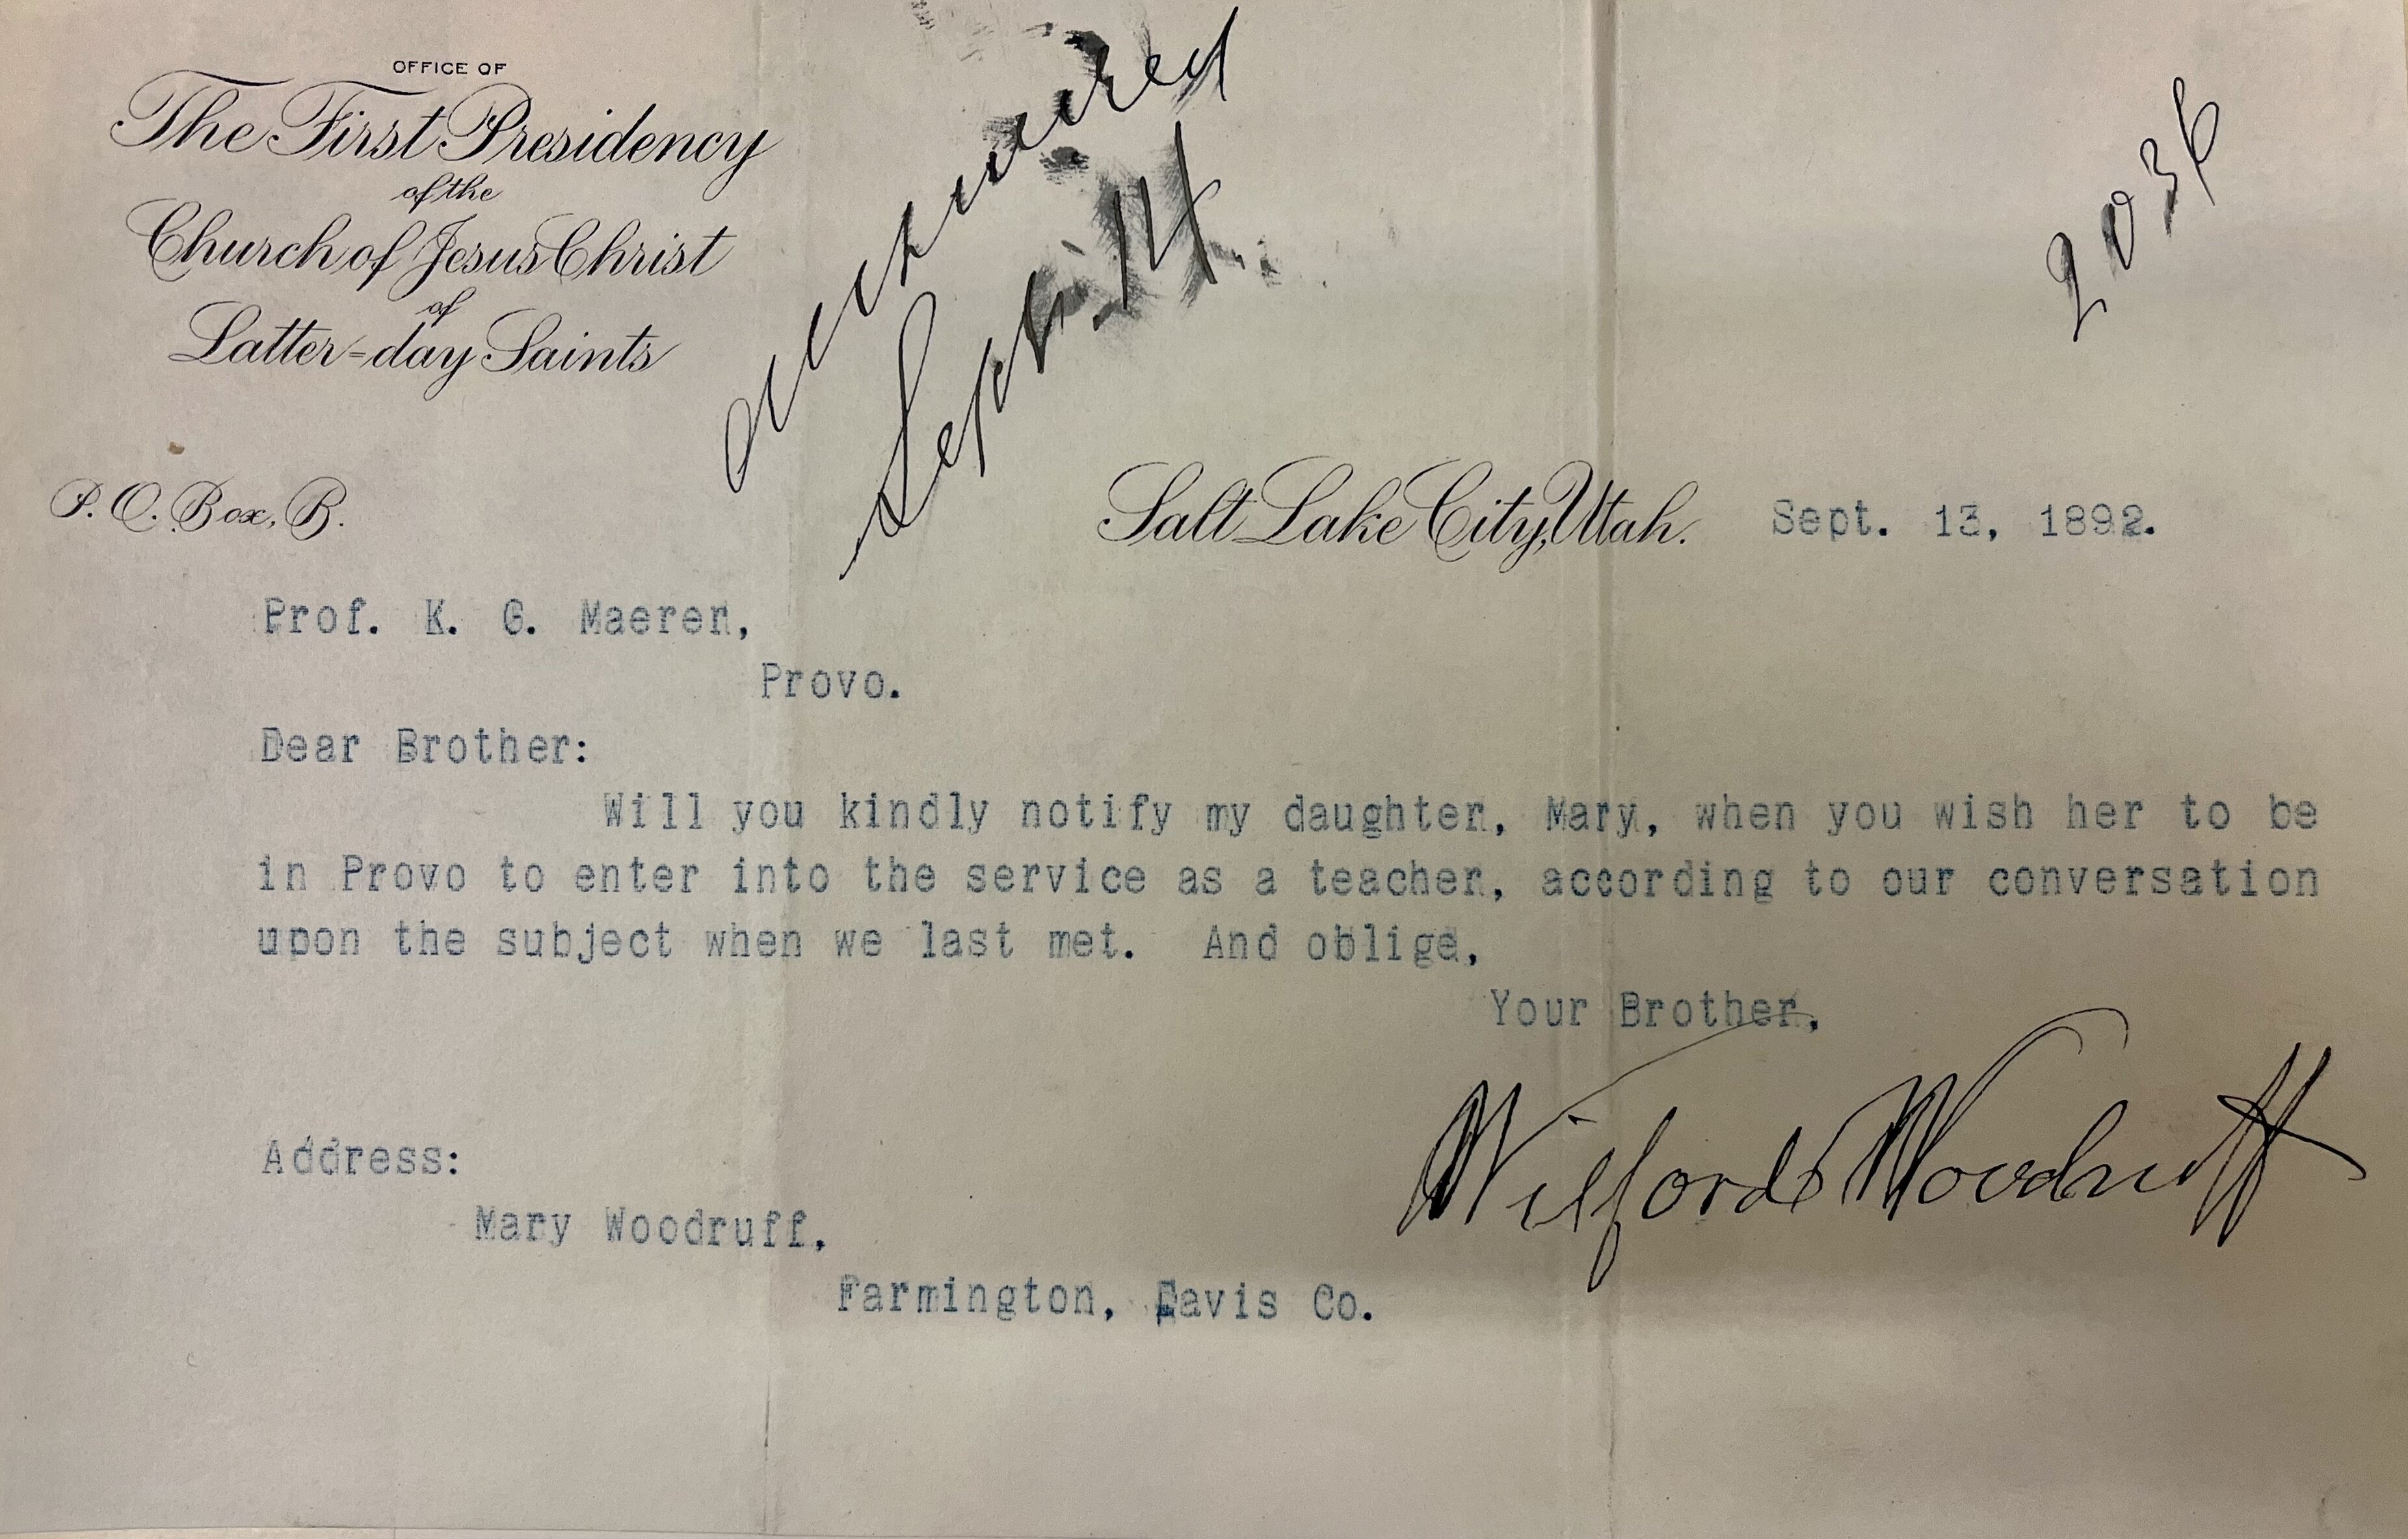 OFFICE OF
The First Presidency
of the
Church of Jesus Christ
of
Latter=day Saints
P. O. Box, B.
answered
Sept. 14
2036
Salt Lake City, Utah. Sept. 13, 1892.
Prof. K. G. Maerer,
Provo.
Dear Brother:
Will you kindly notify my daughter, Mary, when you wish her to be
in Provo to enter into the service as a teacher, according to our conversation
upon the subject when we last met. And oblige,
Your Brother,
Wilford Woodruff
Address:
Mary Woodruff,
Farmington, Davis Co.